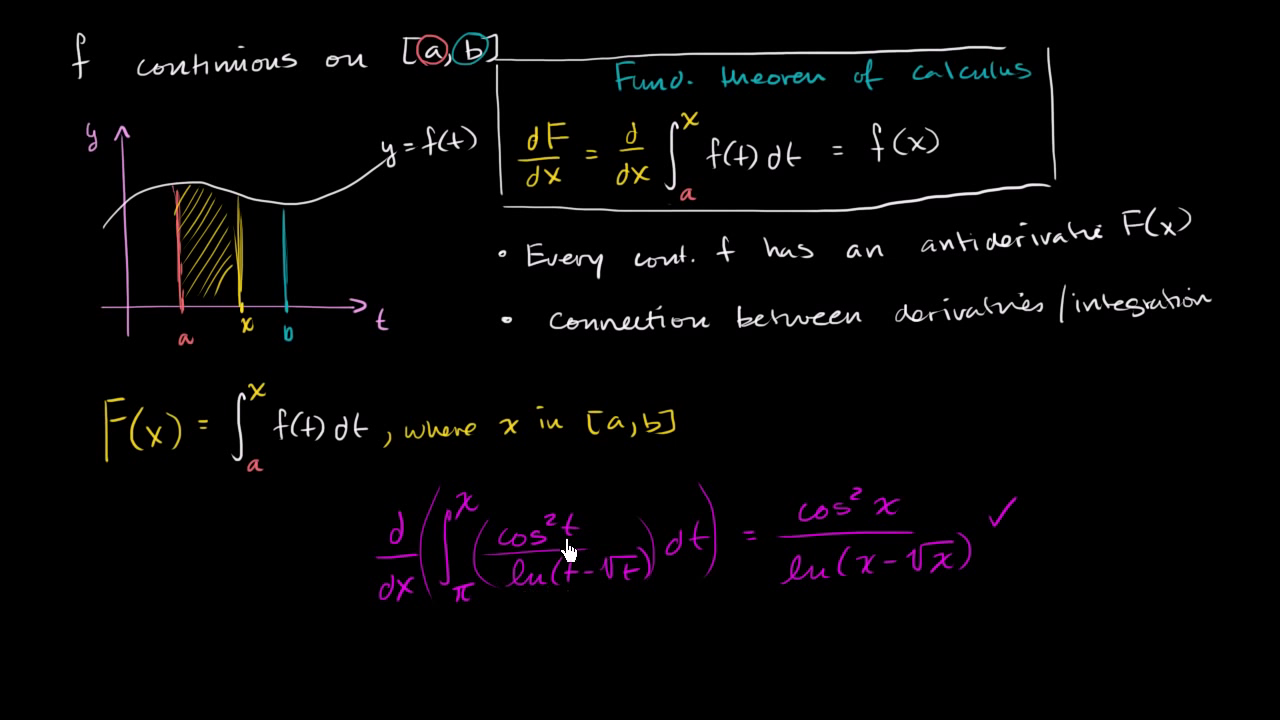 f continuous on [a, b]
Fund. theorem of calculus
dF/dx = d/dx ∫_a^x f(t) dt = f(x)
y
y = f(t)
• Every cont. f has an antiderivative F(x)
• connection between derivatives/integration
a x b t
F(x) = ∫_a^x f(t) dt, where x in [a,b]
d/dx (∫_π^x (cos²t / ln(t-√t)) dt) = cos²x / ln(x-√x) ✓